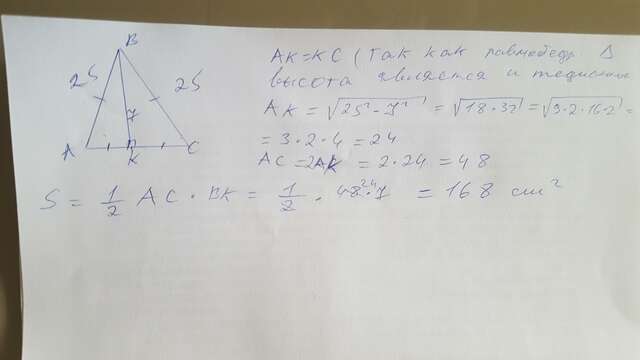 B
25 25
7
A K C
AK = KC (так как равнобедр Δ
высота является и медианой
AK = √25² - 7² = √18 · 32 = √9·2·16·2 =
= 3 · 2 · 4 = 24
AC = 2AK = 2 · 24 = 48
S = 1/2 AC · BK = 1/2 · 48 24 · 7 = 168 cm²